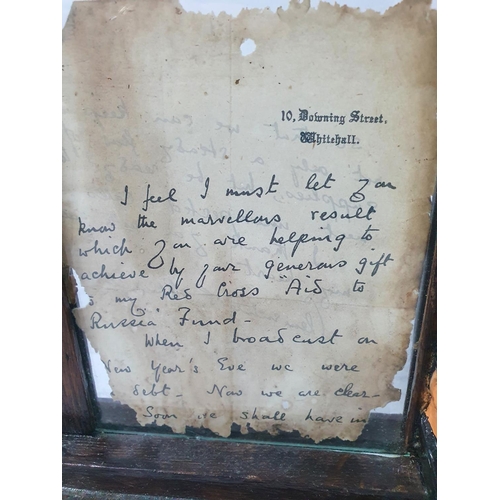 10, Downing Street,
Whitehall.
I feel I must let you
know the marvellous result
which you are helping to
achieve by your generous gift
to my Red Cross Aid to
Russia Fund-
When I broadcast on
New Year's Eve we were
debt. Now we are clear-
Soon we shall have in